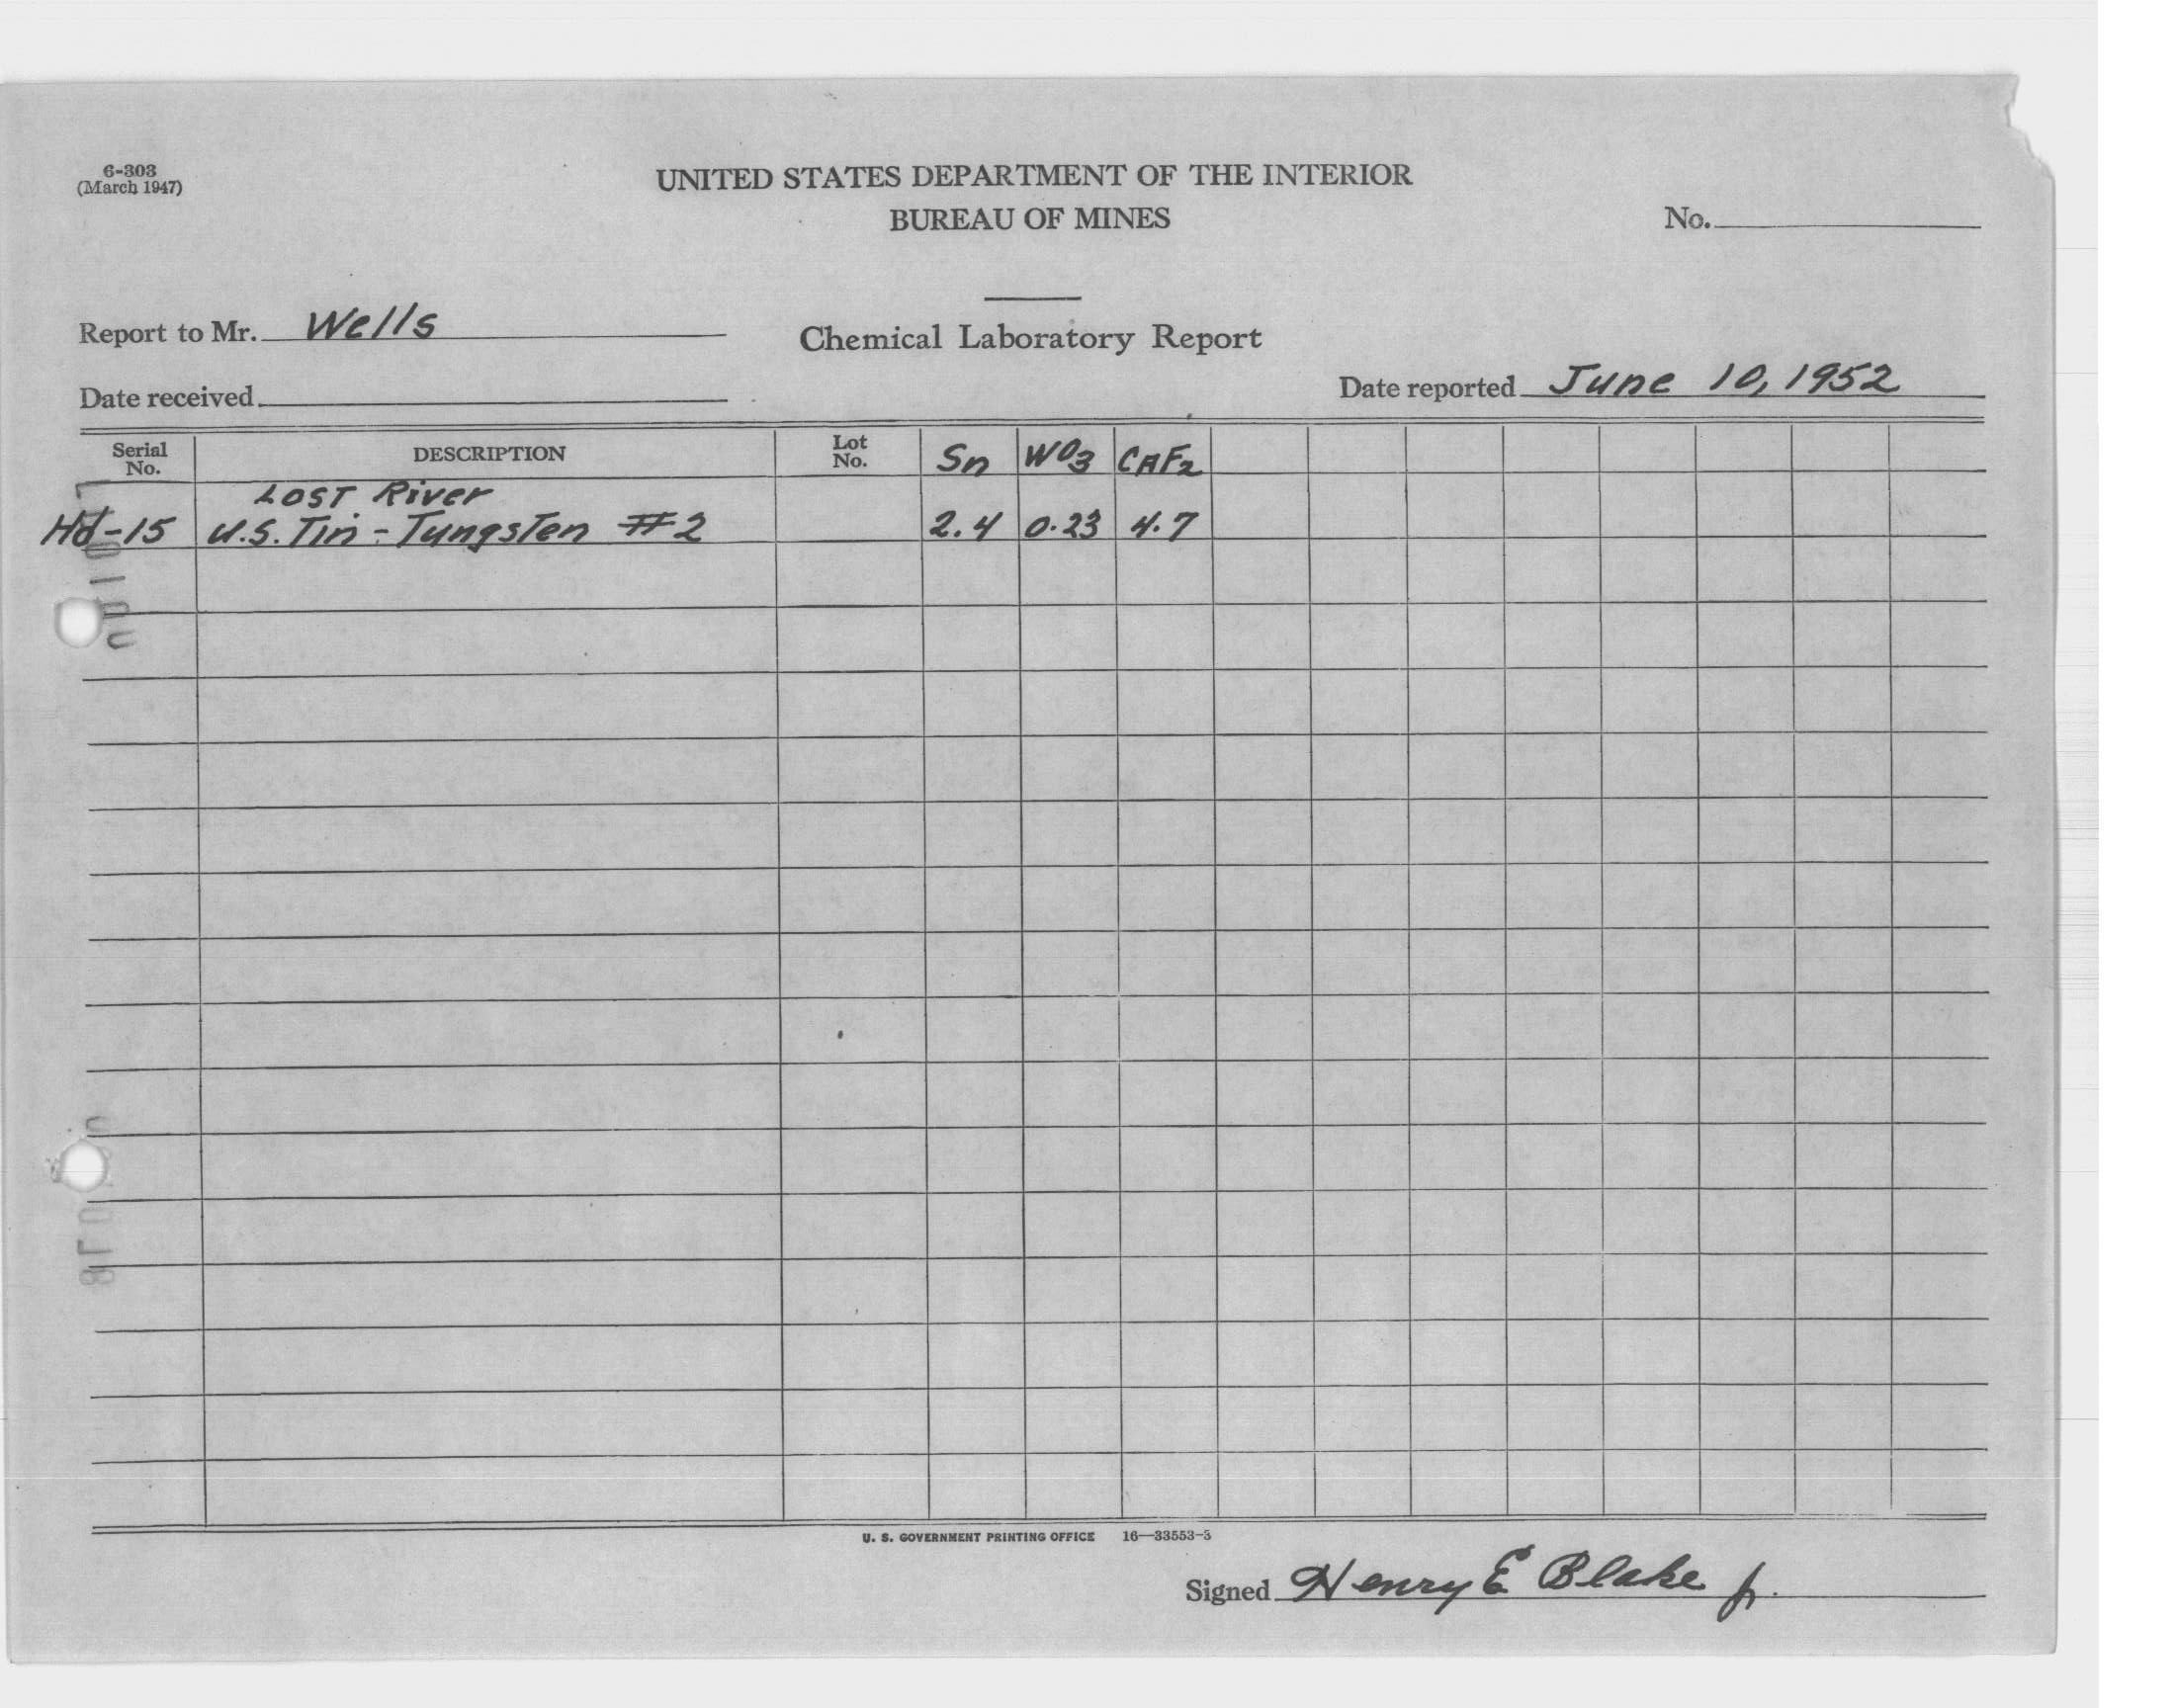 6-303
(March 1947)
UNITED STATES DEPARTMENT OF THE INTERIOR
BUREAU OF MINES
No.
Report to Mr. Wells
Chemical Laboratory Report
Date received
Date reported June 10, 1952
Serial No. DESCRIPTION Lot No. Sn WO3 CAF2
Lost River
Hd-15 U.S. Tin-Tungsten #2 2.4 0.23 4.7
U. S. GOVERNMENT PRINTING OFFICE 16—33553-3
Signed Henry E Blake Jr.